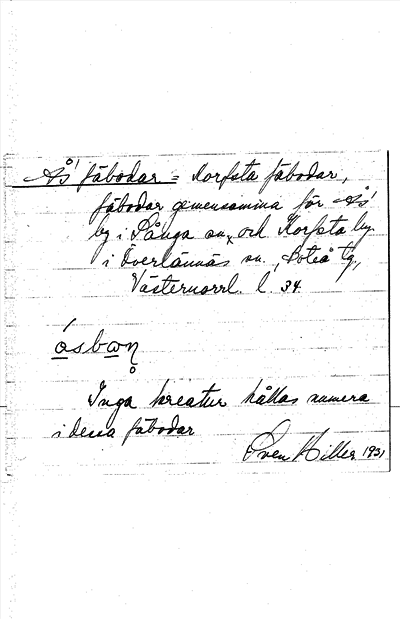 Ås fäbodar = Korpsta fäbodar,
fäbodar gemensamma för Ås
by i Sånga sn, och Korpsta by
i Överlännäs sn., Boteå tg,
Västernorrl. l. 34.
åsbωη
Inga kreatur hållas numera
i dessa fäbodar
Sven Hiller 1931